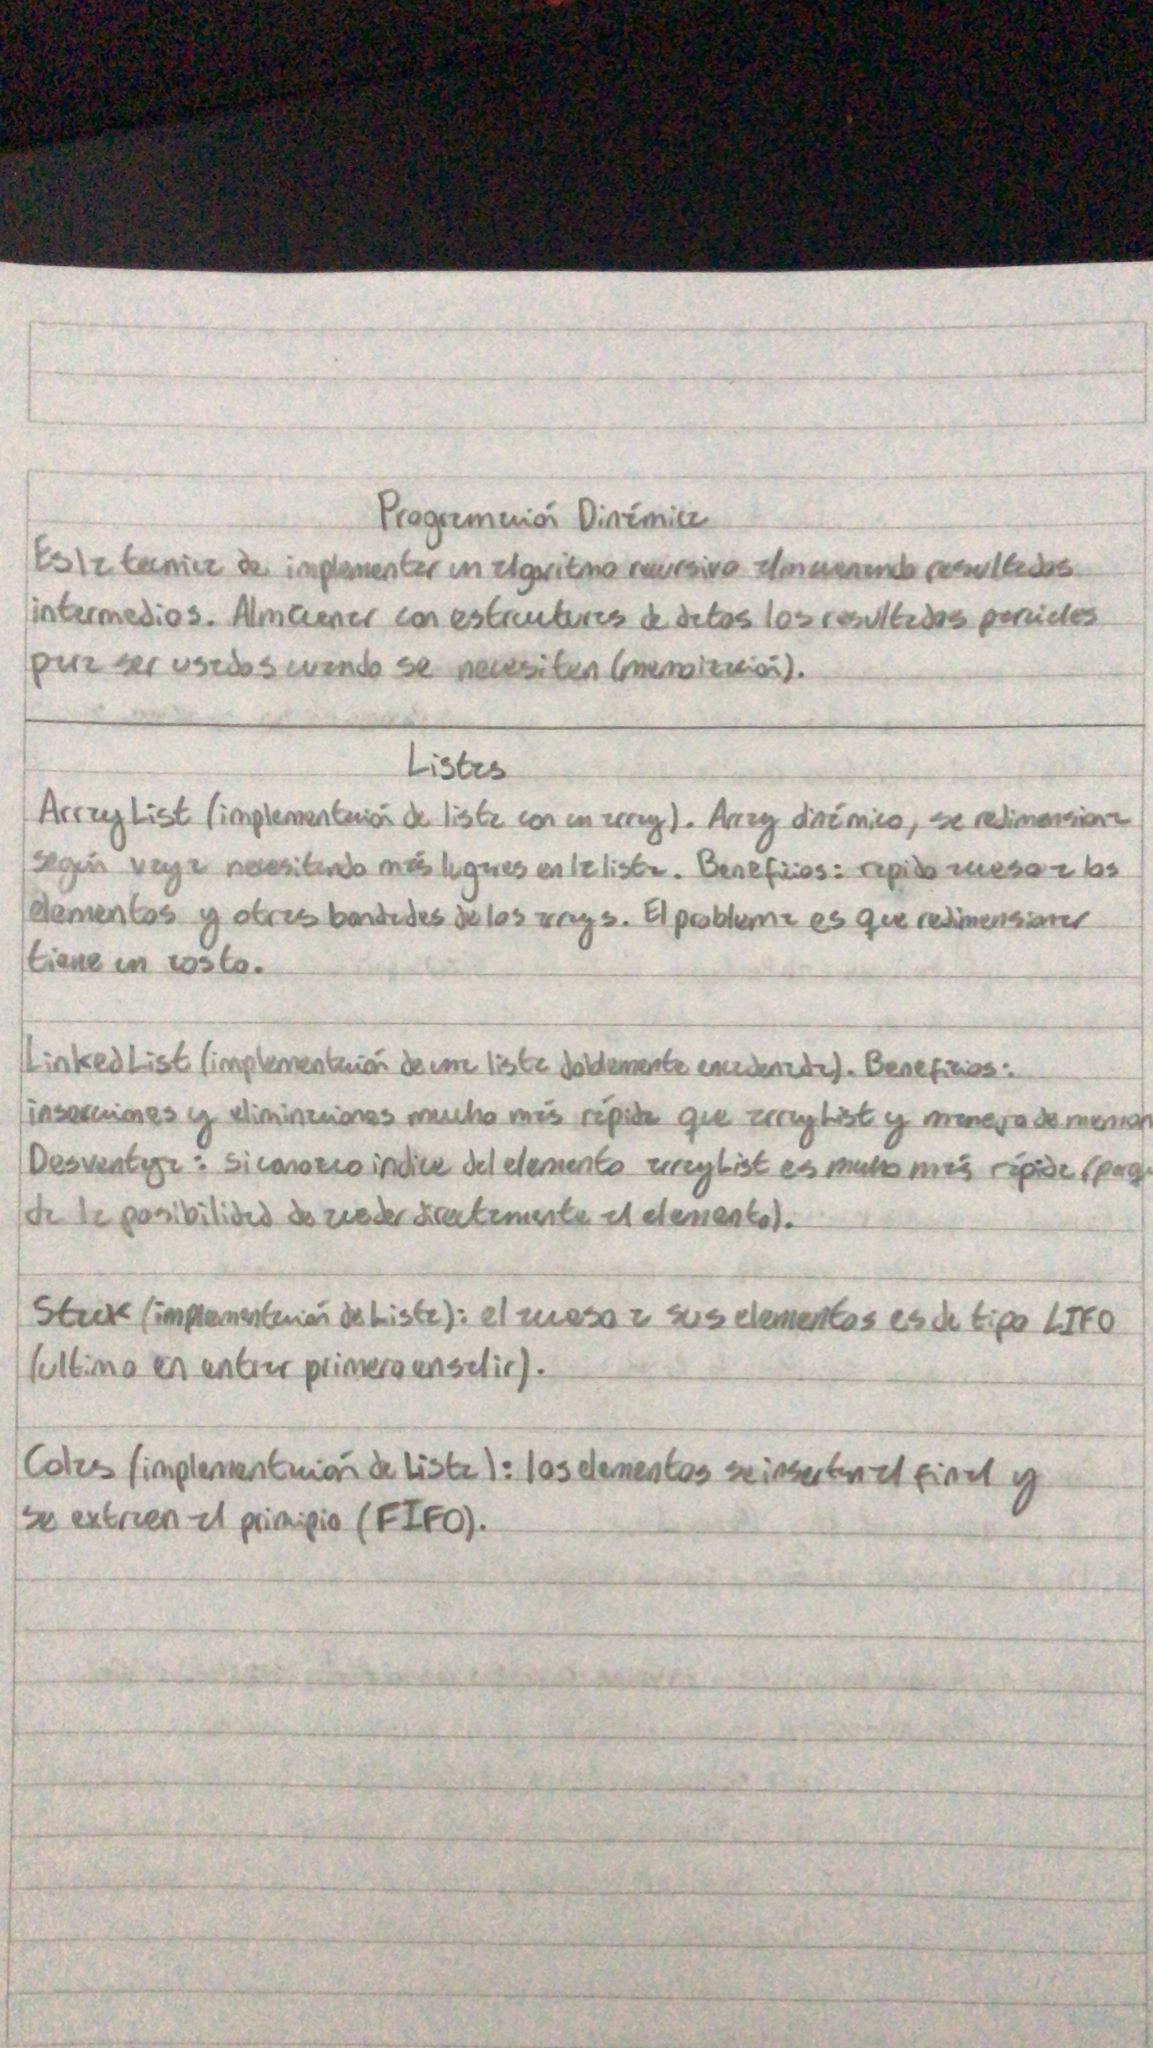 Programación Dinámica
Es la tecnica de implementar un algoritmo recursivo almacenando resultados
intermedios. Almacenar con estructuras de datos los resultados parciales
para ser usados cuando se necesiten (memoización).
Listas
ArrayList (implementación de lista con un array). Array dinámico, se redimensiona
según vaya necesitando más lugares en la lista. Beneficios: rapido acceso a los
elementos y otras bondades de los arrays. El problema es que redimensionar
tiene un costo.
LinkedList (implementación de una lista doblemente encadenada). Beneficios:
inserciones y eliminaciones mucho más rápida que arrayList y manejo de memori
Desventaja: si conozco indice del elemento arrayList es mucho más rápida (porq
da la posibilidad de acceder directamente al elemento).
Stack (implementación de Lista): el acceso a sus elementos es de tipo LIFO
(ultimo en entrar primero en salir).
Colas (implementación de Lista): los elementos se insertan al final y
se extraen al principio (FIFO).